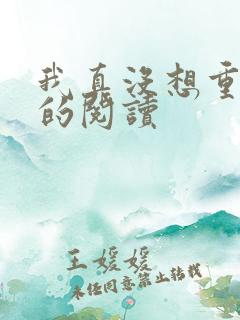 我真沒想重
的閱讀
王媛媛
未经同意禁止转载